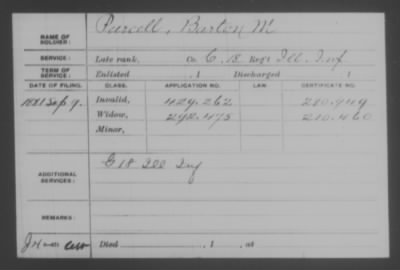 NAME OF SOLDIER: Purcell, Burton M
SERVICE: Late rank, Co. C. 18 Reg't Ill. Inf.
TERM OF SERVICE: Enlisted , 1 Discharged 1
DATE OF FILING. CLASS. APPLICATION NO. LAW. CERTIFICATE NO.
1881 Sep 9. Invalid, 429.262
Widow, 292.475 210.460
Minor,
ADDITIONAL SERVICES: G 18 Ill Inf
REMARKS:
Died , 1 , at